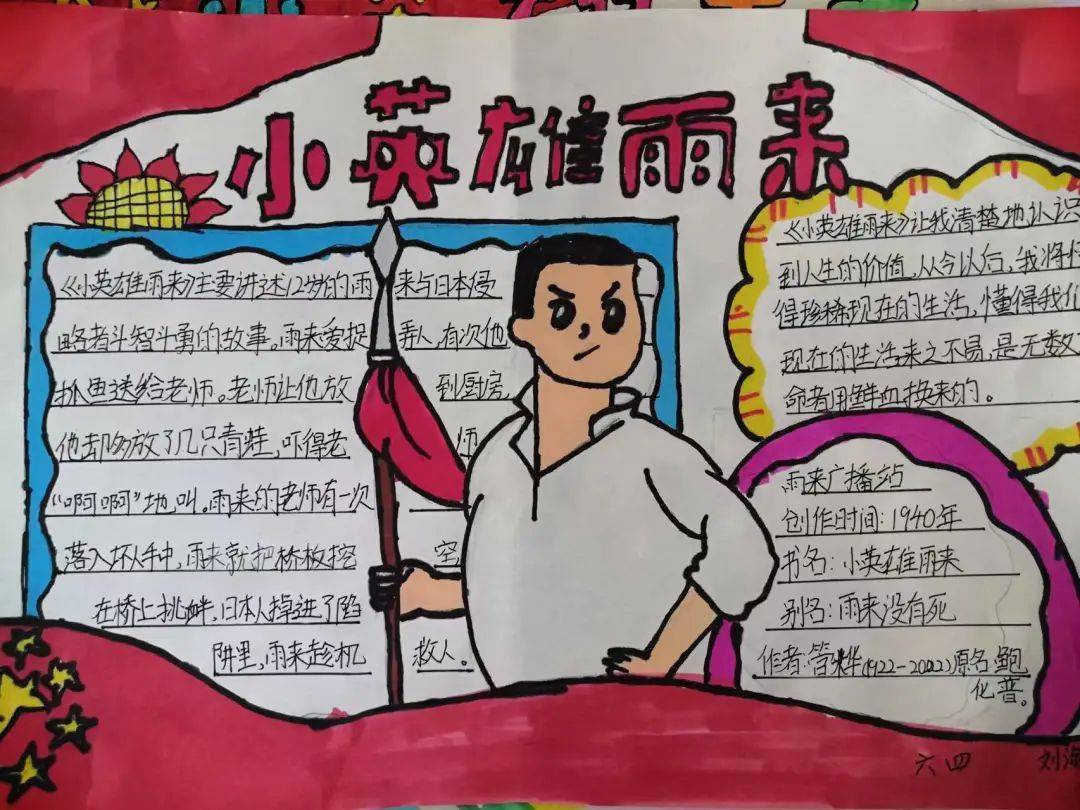 小英雄雨来
《小英雄雨来》主要讲述12岁的雨来与日本侵
略者斗智斗勇的故事。雨来爱捉弄人,有次他
抓鱼送给老师。老师让他放到厨房
他却放了几只青蛙,吓得老师
“啊啊”地叫。雨来的老师有一次
落入坏人手中,雨来就把桥板挖空
在桥上挑衅,日本人掉进了陷
阱里,雨来趁机救人。
《小英雄雨来》让我清楚地认识
到人生的价值,从今以后,我将
得珍稀现在的生活,懂得我们
现在的生活来之不易,是无数
命者用鲜血换来的。
雨来广播站
创作时间:1940年
书名:小英雄雨来
别名:雨来没有死
作者:管桦(1922-2002)原名:鲍
化普。
六四 刘